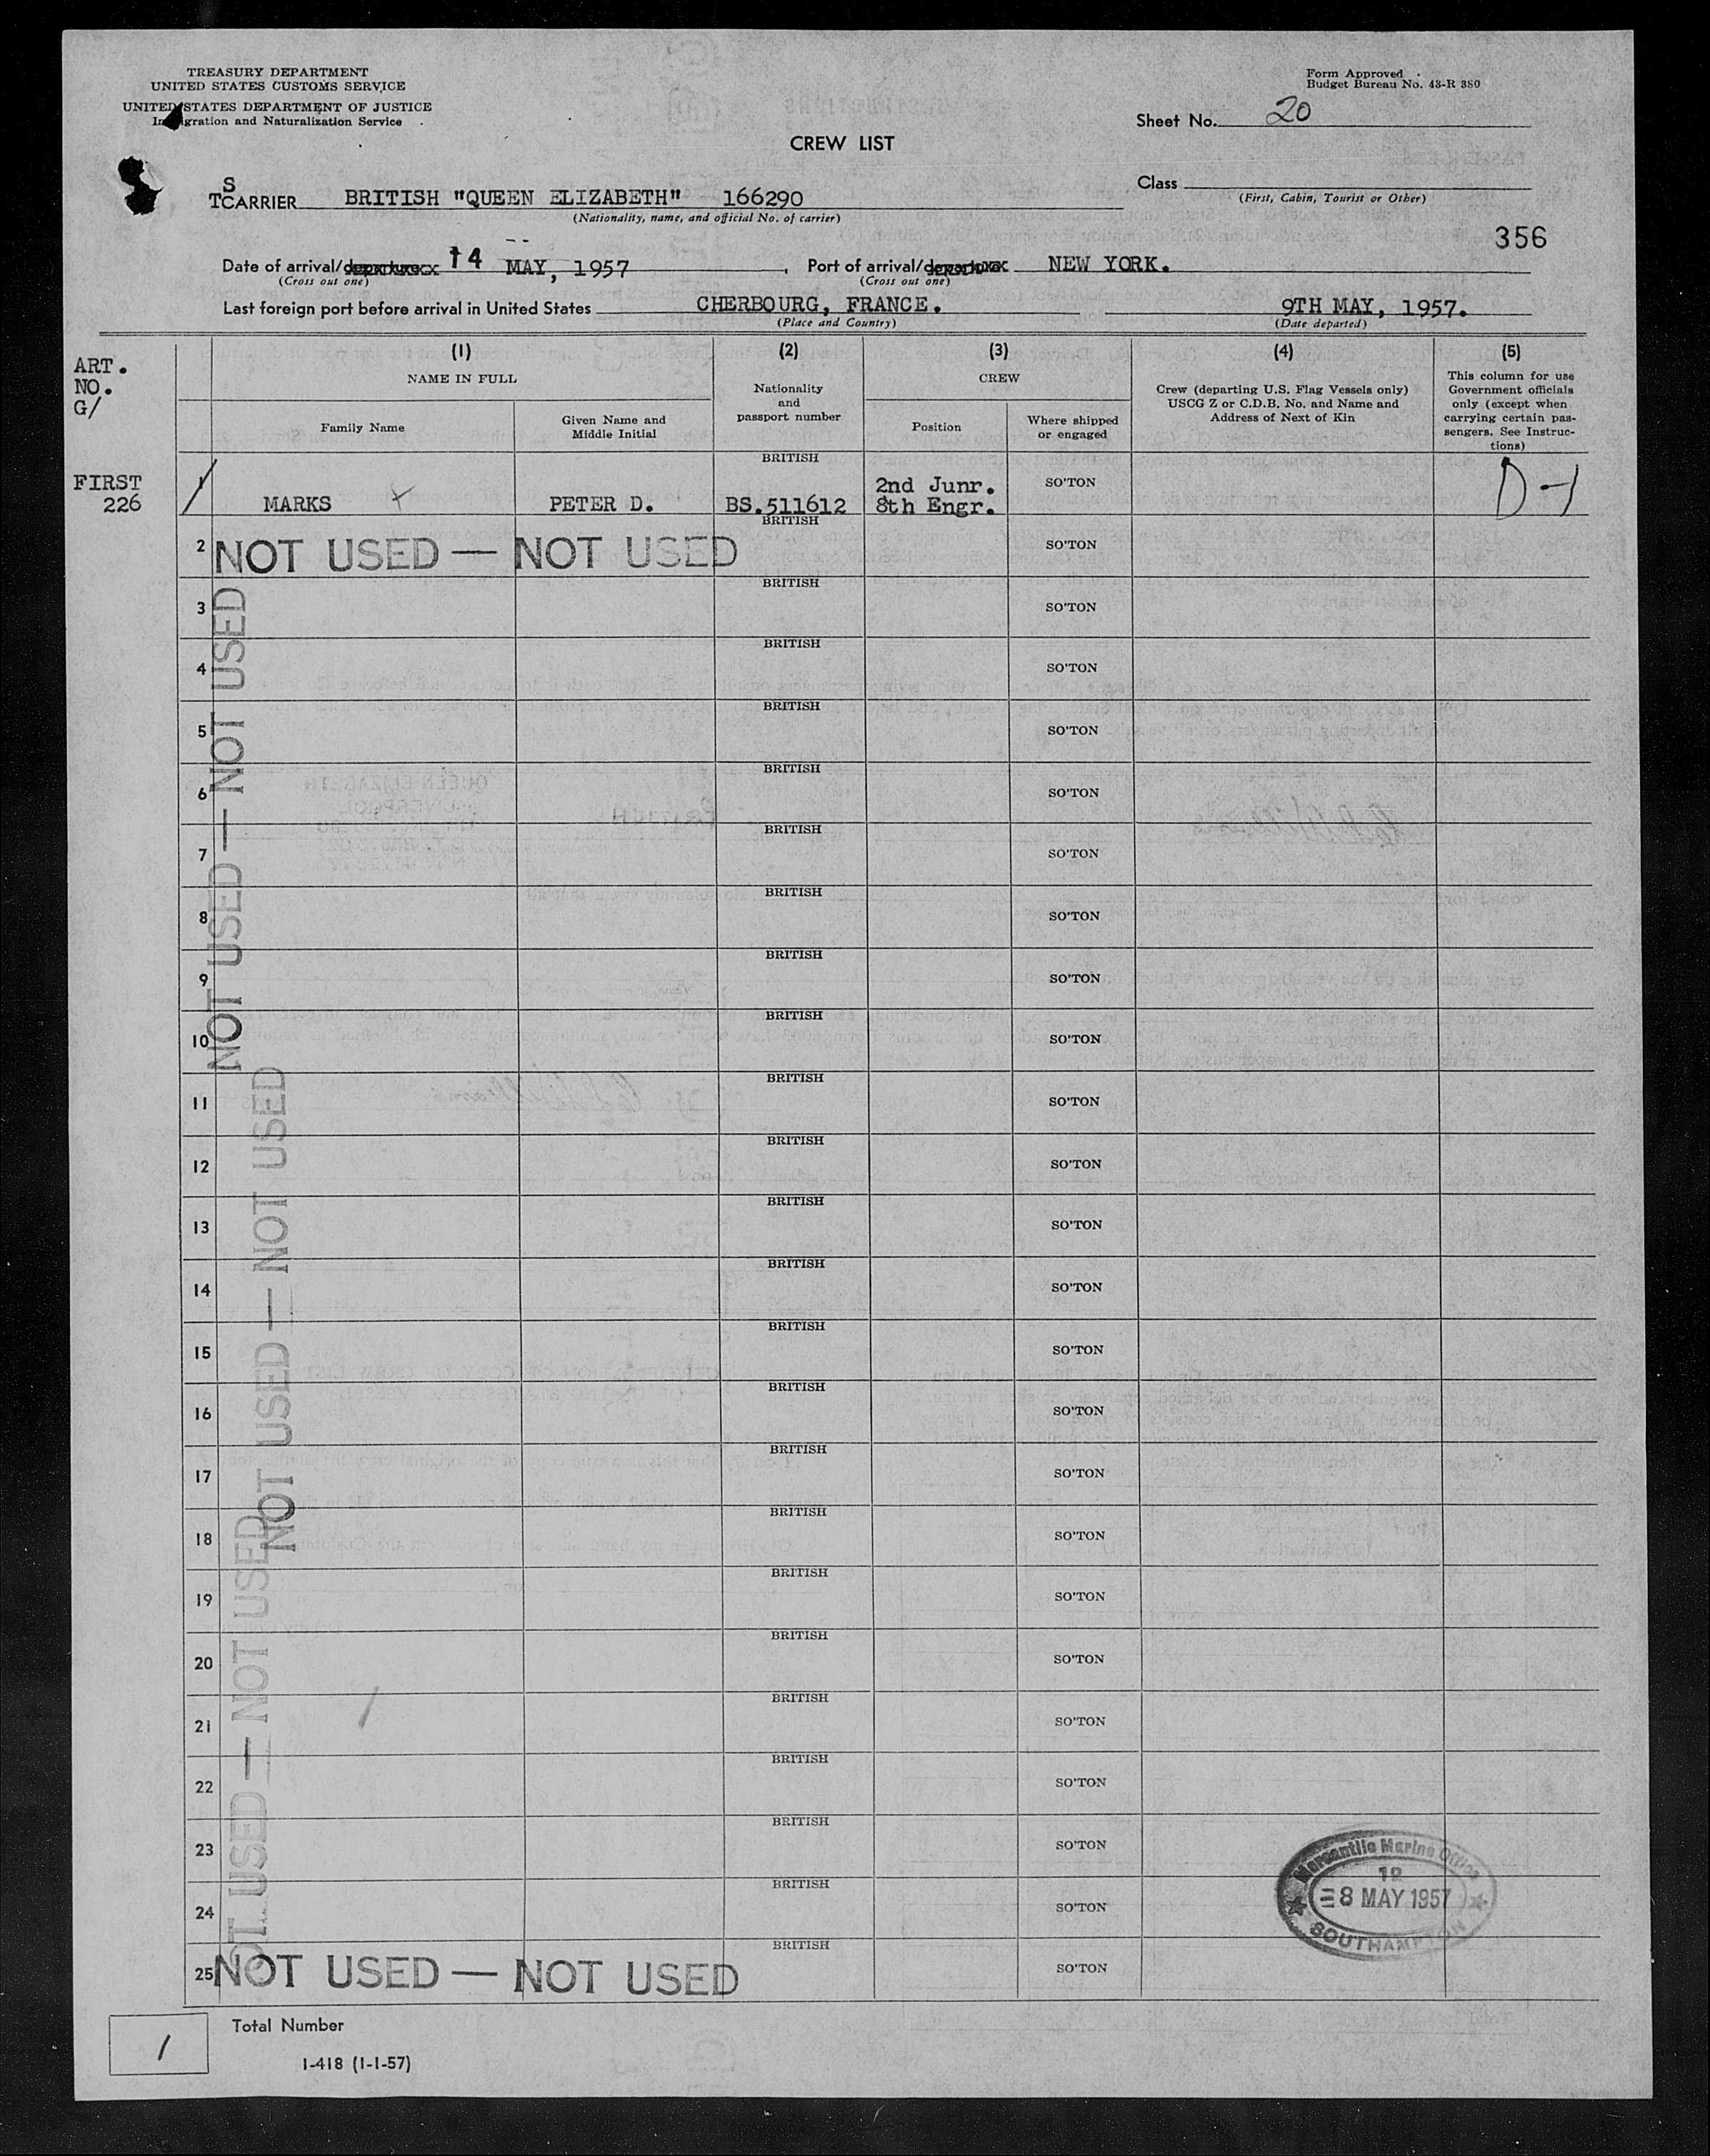 TREASURY DEPARTMENT
UNITED STATES CUSTOMS SERVICE
UNITED STATES DEPARTMENT OF JUSTICE
Immigration and Naturalization Service
Form Approved
Budget Bureau No. 43-R 380
Sheet No. 20
CREW LIST
Class
(First, Cabin, Tourist or Other)
S
TCARRIER BRITISH "QUEEN ELIZABETH" 166290
(Nationality, name, and official No. of carrier)
356
Date of arrival/departure 14 MAY, 1957, Port of arrival/departure NEW YORK.
(Cross out one) (Cross out one)
Last foreign port before arrival in United States CHERBOURG, FRANCE. 9TH MAY, 1957.
(Place and Country) (Date departed)
ART.
NO.
G/
(1) (2) (3) (4) (5)
NAME IN FULL
Family Name
Given Name and
Middle Initial
Nationality
and
passport number
CREW
Position
Where shipped
or engaged
Crew (departing U.S. Flag Vessels only)
USCG Z or C.D.B. No. and Name and
Address of Next of Kin
This column for use
Government officials
only (except when
carrying certain pas-
sengers. See Instruc-
tions)
BRITISH
FIRST 1 2nd Junr. SO'TON D-1
226 MARKS PETER D. BS.511612 8th Engr.
BRITISH
2 NOT USED — NOT USED SO'TON
BRITISH
3 SO'TON
BRITISH
4 SO'TON
BRITISH
5 SO'TON
BRITISH
6 SO'TON
BRITISH
7 SO'TON
BRITISH
8 SO'TON
BRITISH
9 SO'TON
BRITISH
10 SO'TON
BRITISH
11 SO'TON
BRITISH
12 SO'TON
BRITISH
13 SO'TON
BRITISH
14 SO'TON
BRITISH
15 SO'TON
BRITISH
16 SO'TON
BRITISH
17 SO'TON
BRITISH
18 SO'TON
BRITISH
19 SO'TON
BRITISH
20 SO'TON
BRITISH
21 SO'TON
BRITISH
22 SO'TON
BRITISH
23 SO'TON
BRITISH
24 SO'TON
BRITISH
25 NOT USED — NOT USED SO'TON
NOT USED — NOT USED
NOT USED — NOT USED
NOT USED — NOT USED
Mercantile Marine Office
12
8 MAY 1957
SOUTHAMPTON
1
Total Number
I-418 (1-1-57)